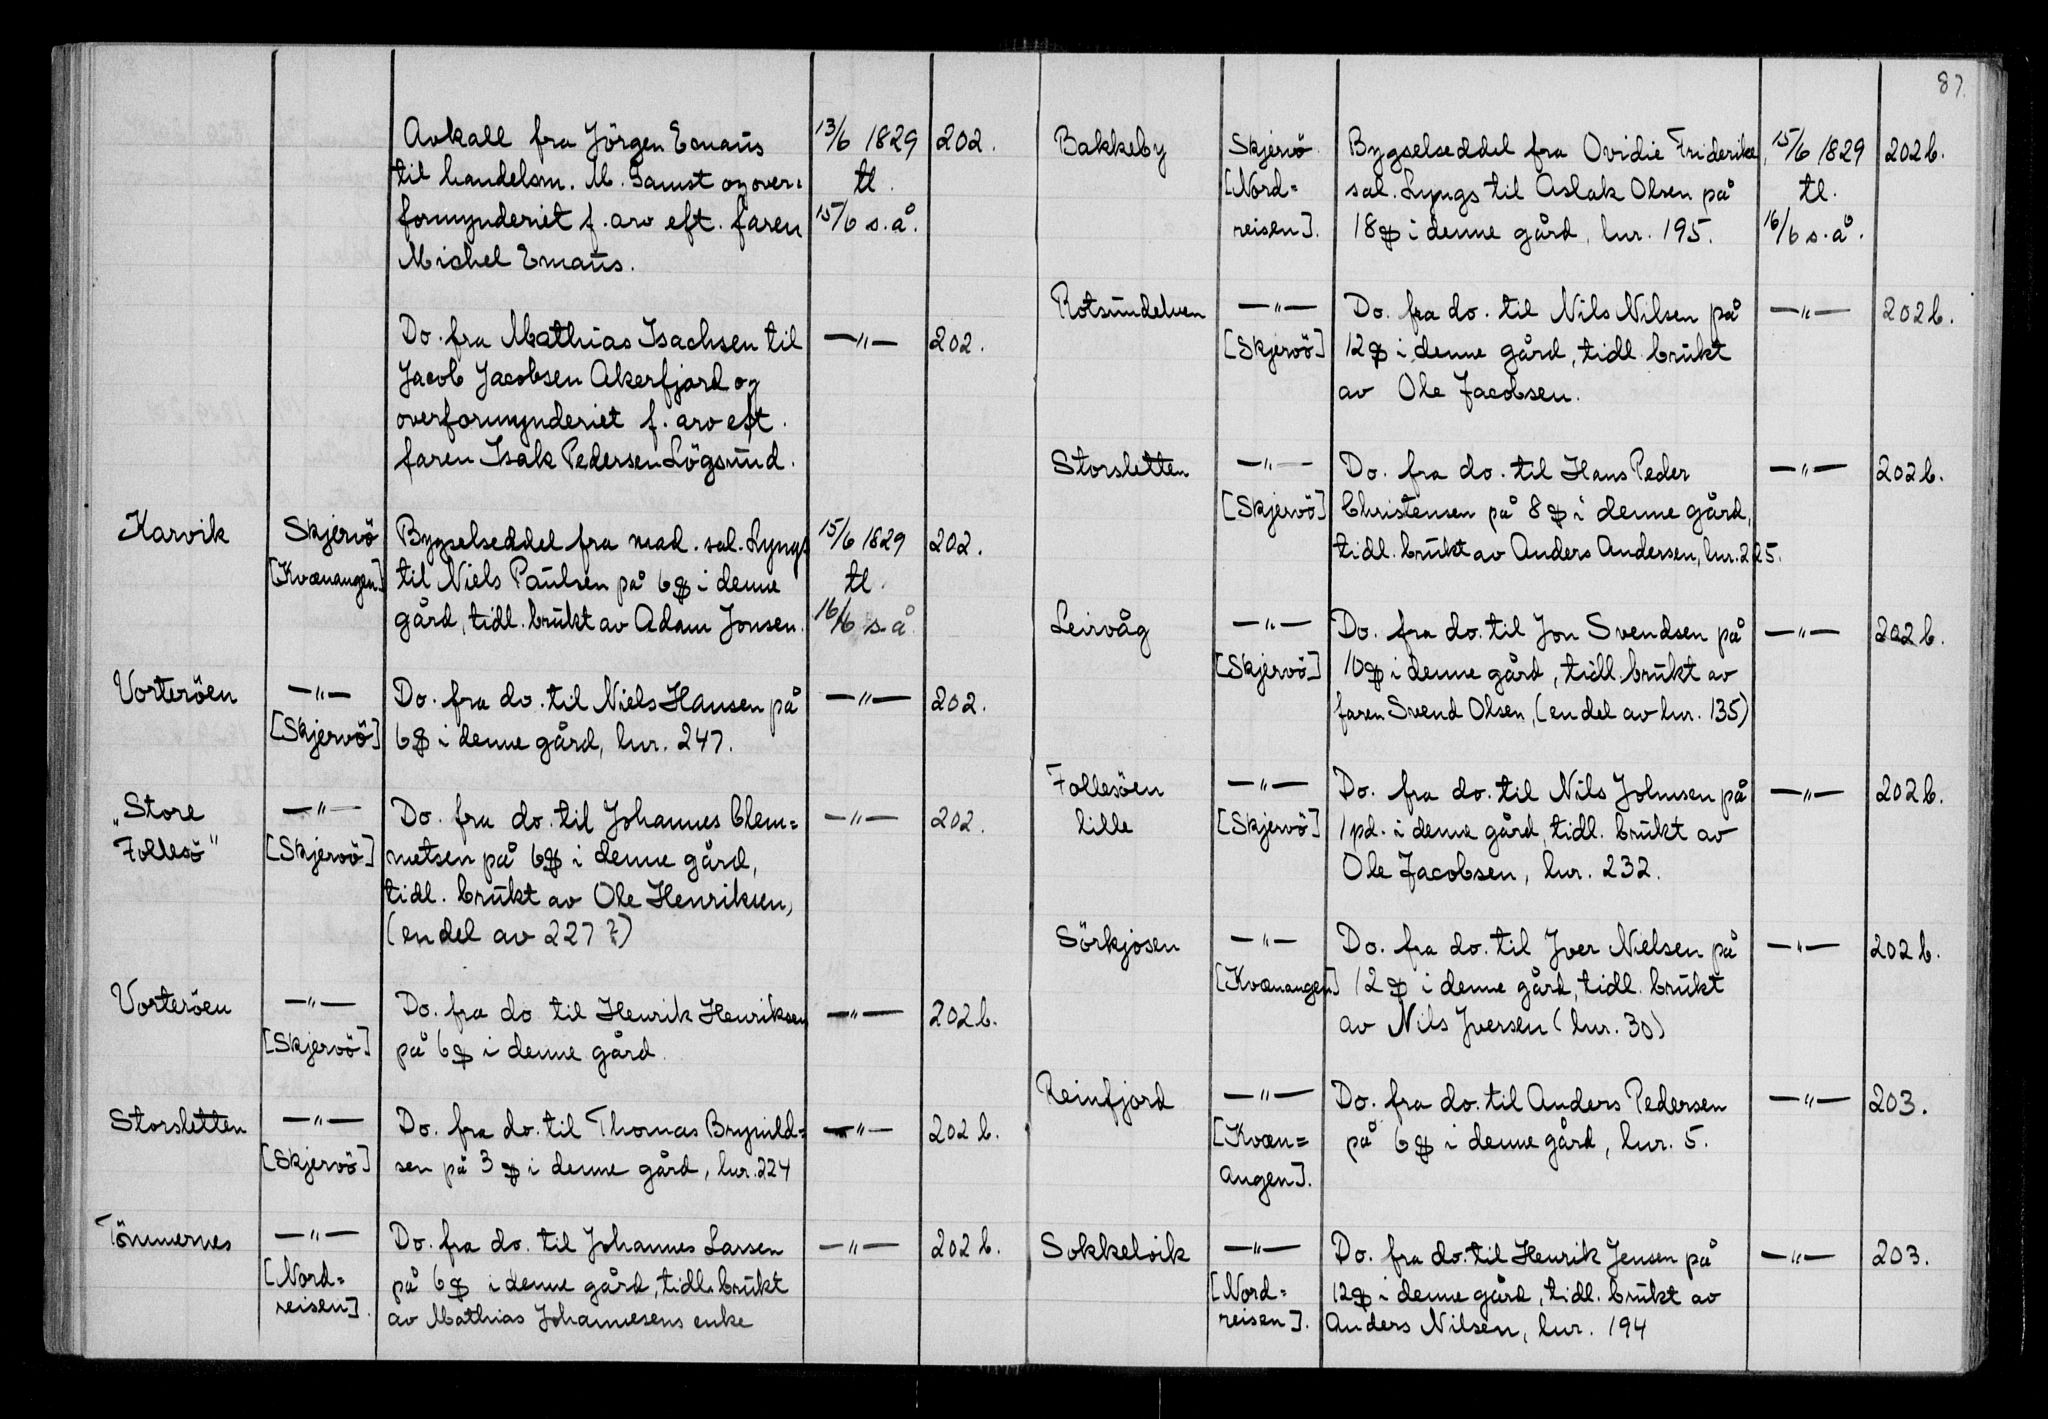 Avkall fra Jörgen Emaus 13/6 1829 202.
til handelsm. M. Gamst og over= tl.
formynderiet f. arv eft. faren 15/6 s.å.
Michel Emaus.
Do. fra Mathias Isachsen til —"— 202.
Jacob Jacobsen Akerfjord og
overformynderiet f. arv eft.
faren Isak Pedersen Lögsund.
Karvik Skjervö Bygselseddel fra mad. sal. Lyngs 15/6 1829 202.
[Kvænangen] til Niels Paulsen på 6 ℔ i denne tl.
gård, tidl. brukt av Adam Jonsen. 16/6 s.å.
Vorteröen —"— Do. fra do. til Niels Hansen på —"— 202.
[Skjervö] 6 ℔ i denne gård, lnr. 247.
„Store —"— Do. fra do. til Johannes Clem= —"— 202.
Follesö" [Skjervö] metsen på 6 ℔ i denne gård,
tidl. brukt av Ole Henriksen,
(en del av 227?)
Vorteröen —"— Do. fra do til Henrik Henriksen —"— 202b.
[Skjervö] på 6 ℔ i denne gård.
Storsletten —"— Do. fra do. til Thomas Brynild= —"— 202b.
[Skjervö] sen på 3 ℔ i denne gård, lnr. 224
Tömmernes —"— Do. fra do. til Johannes Larsen —"— 202b.
[Nord= på 6 ℔ i denne gård, tidl. brukt
reisen]. av Mathias Johannesens enke
87.
Bakkeby Skjervö Bygselseddel fra Ovidie Friderike, 15/6 1829 202b.
[Nord= sal. Lyngs til Aslak Olsen på tl.
reisen]. 18 ℔ i denne gård, lnr. 195. 16/6 s.å.
Rotsundelven —"— Do. fra do. til Nils Nilsen på —"— 202b.
[Skjervö] 12 ℔ i denne gård, tidl. brukt
av Ole Jacobsen.
Storsletten —"— Do. fra do. til Hans Peder —"— 202b.
[Skjervö] Christensen på 8 ℔ i denne gård,
tidl. brukt av Anders Andersen, lnr. 225.
Leirvåg —"— Do. fra do. til Jon Svendsen på —"— 202b.
[Skjervö] 10 ℔ i denne gård, tidl. brukt av
faren Svend Olsen, (en del av lnr. 135)
Follesöen —"— Do. fra do. til Nils Johnsen på —"— 202b.
lille [Skjervö] 1 pd. i denne gård, tidl. brukt av
Ole Jacobsen, lnr. 232.
Sörkjosen —"— Do. fra do. til Iver Nielsen på —"— 202b.
[Kvænangen] 12 ℔ i denne gård, tidl. brukt
av Nils Iversen (lnr. 30)
Reinfjord —"— Do. fra do. til Anders Pedersen —"— 203.
[Kvæn= på 6 ℔ i denne gård, lnr. 5.
angen].
Sokkelvik —"— Do. fra do. til Henrik Jensen på —"— 203.
[Nord= 12 ℔ i denne gård, tidl. brukt av
reisen]. Anders Nilsen, lnr. 194